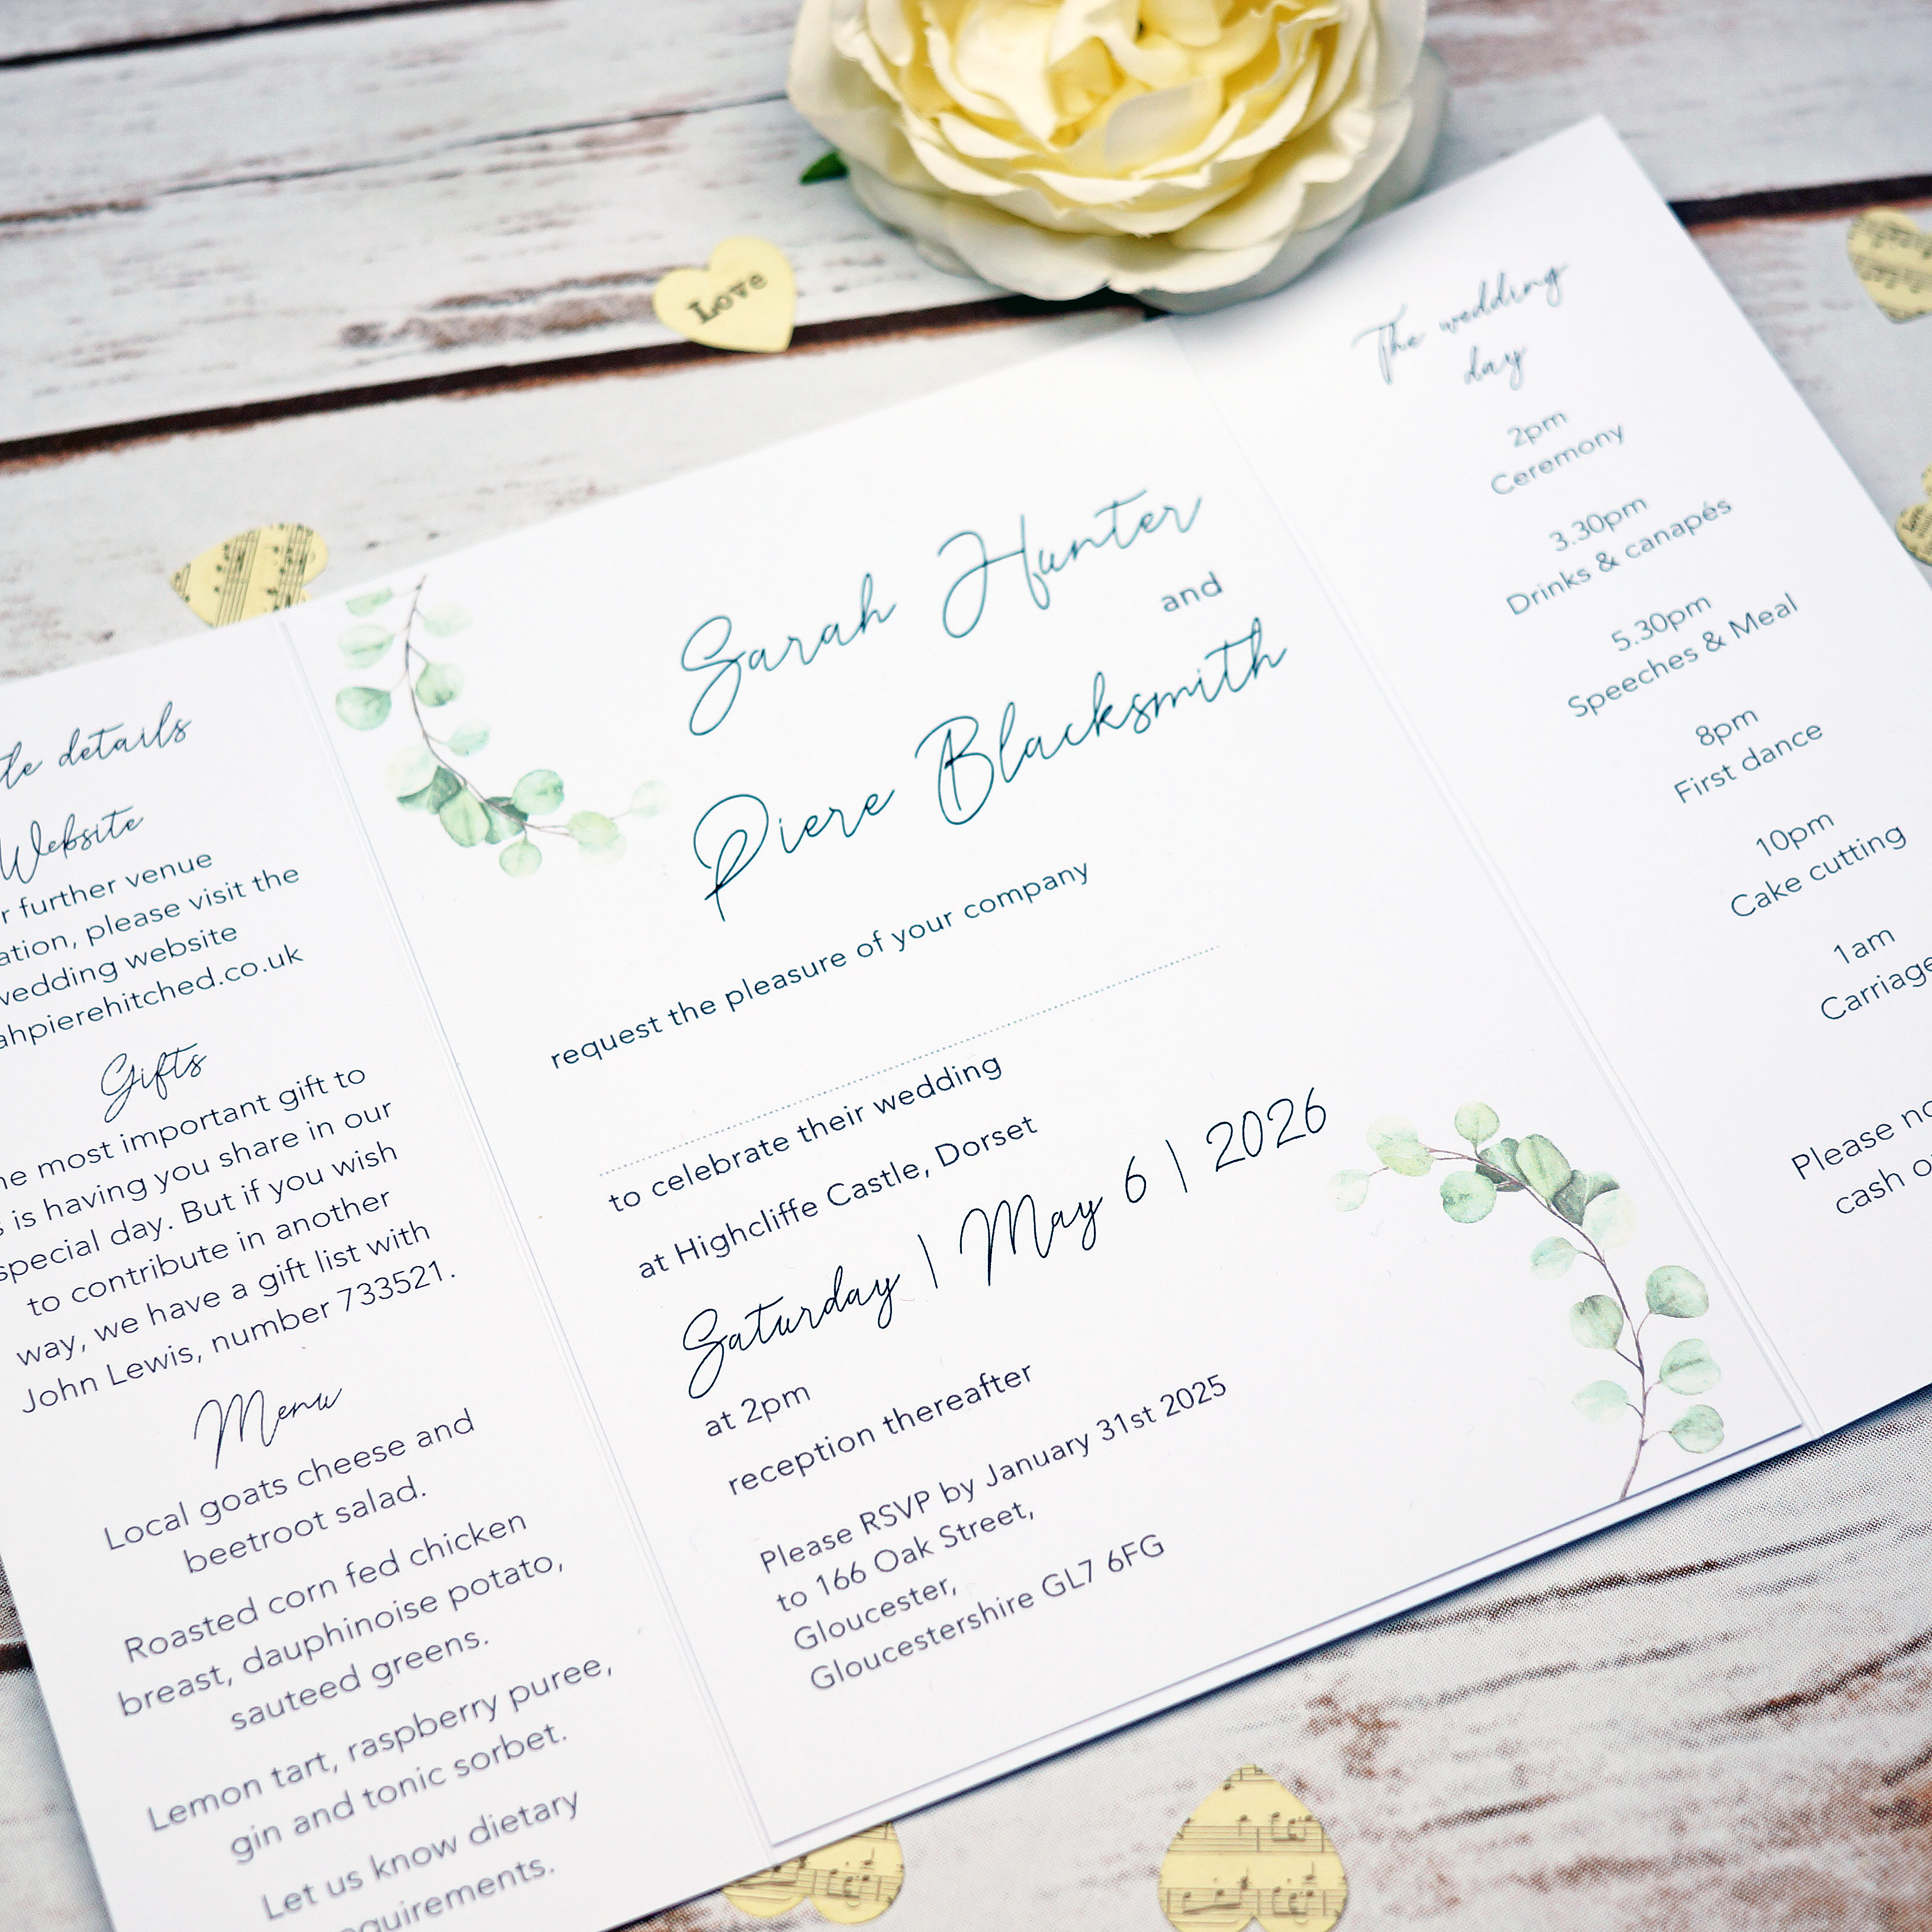 Love
details
Website
further venue
please visit the
wedding website
Gifts
most important gift to
is having you share in our
special day. But if you wish
to contribute in another
way, we have a gift list with
John Lewis, number 733521.
Menu
Local goats cheese and
beetroot salad.
Roasted corn fed chicken
breast, dauphinoise potato,
sauteed greens.
Lemon tart, raspberry puree,
gin and tonic sorbet.
Let us know dietary
Sarah Hunter
and
Piere Blacksmith
request the pleasure of your company
to celebrate their wedding
at Highcliffe Castle, Dorset
Saturday | May 6 | 2026
at 2pm
reception thereafter
Please RSVP by January 31st 2025
to 166 Oak Street,
Gloucester,
Gloucestershire GL7 6FG
The wedding
day
2pm
Ceremony
3.30pm
Drinks & canapés
5.30pm
Speeches & Meal
8pm
First dance
10pm
Cake cutting
1am
Please
cash